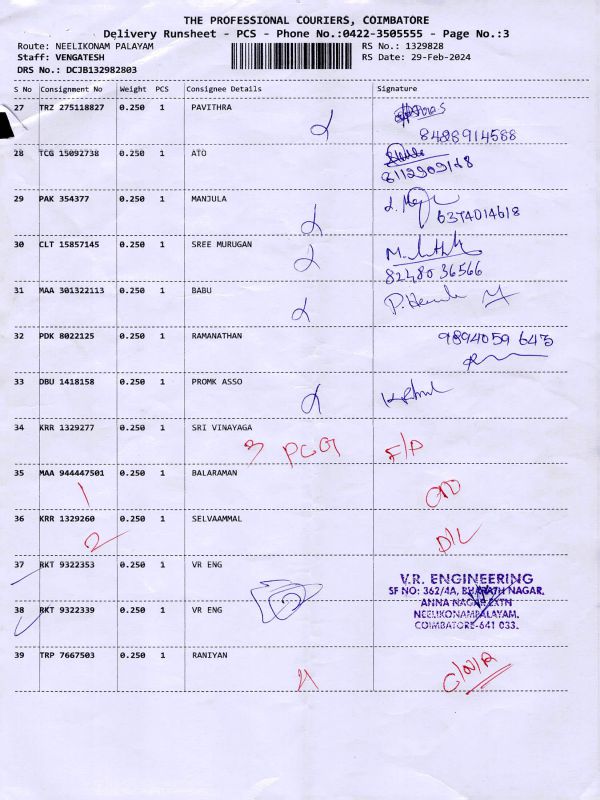 THE PROFESSIONAL COURIERS, COIMBATORE
Delivery Runsheet - PCS - Phone No.:0422-3505555 - Page No.:3
Route: NEELIKONAM PALAYAM
RS No.: 1329828
Staff: VENGATESH
RS Date: 29-Feb-2024
DRS No.: DCJB132982803
S No Consignment No Weight PCS Consignee Details Signature
27 TRZ 275118827 0.250 1 PAVITHRA
8488914588
28 TCG 15092738 0.250 1 ATO
8112909148
29 PAK 354377 0.250 1 MANJULA
6374014618
30 CLT 15857145 0.250 1 SREE MURUGAN
82480 36566
31 MAA 301322113 0.250 1 BABU
32 PDK 8022125 0.250 1 RAMANATHAN
9894059 643
33 DBU 1418158 0.250 1 PROMK ASSO
34 KRR 1329277 0.250 1 SRI VINAYAGA
3 F/P
35 MAA 944447501 0.250 1 BALARAMAN
1
36 KRR 1329260 0.250 1 SELVAAMMAL
2 D/L
37 RKT 9322353 0.250 1 VR ENG
V.R. ENGINEERING
SF NO: 362/4A, BHARATH NAGAR,
38 RKT 9322339 0.250 1 VR ENG
ANNA NAGAR EXTN
NEELIKONAMPALAYAM,
COIMBATORE-641 033.
39 TRP 7667503 0.250 1 RANIYAN